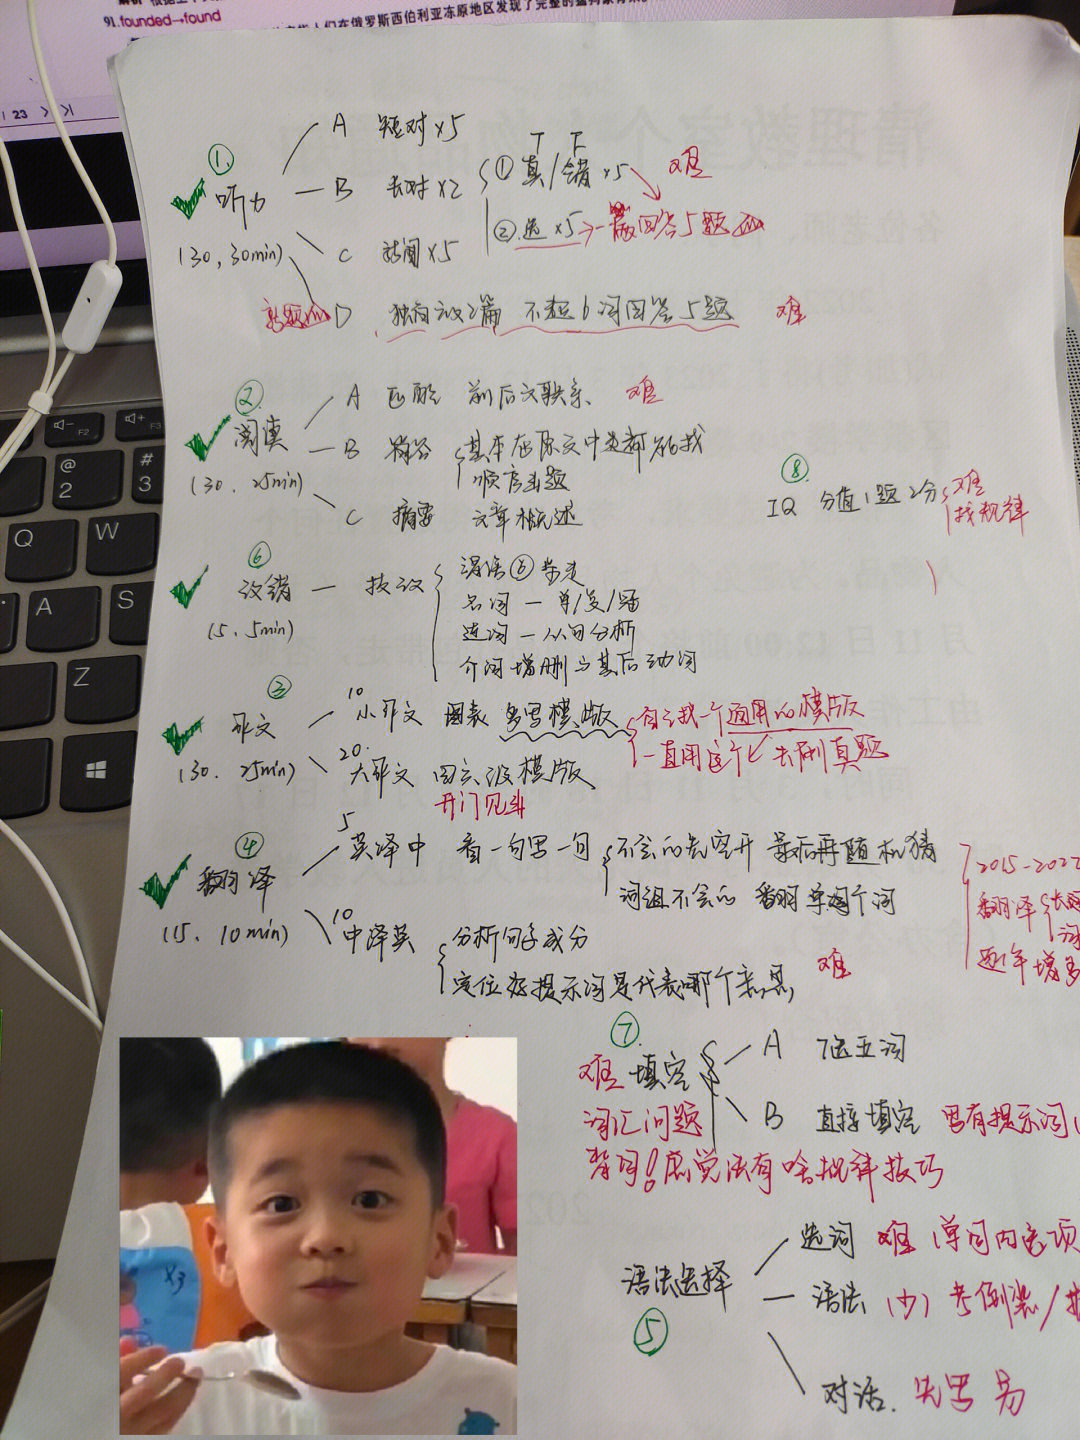 91.founded→found
人们在俄罗斯西伯利亚冻原地区发现了完整的
23
① 听力 (30, 30min)
A 短对×5
B 长对×2
① 真/错×5 T F 难
② 选×5
回答5题
C 新闻×5
D 不超6词回答5题 难
② 阅读 (30. 25min)
A 匹配 前后文联系 难
B 简答 基本在原文中都能找
顺序出题
C 摘要 文章概述
⑧ IQ 分值1题2分 难
找规律
⑥ 改错 — 技巧 (5. 5min)
名词 — 单/复/
连词 — 从句分析
介词增删与其后动词
③ 作文 (30. 25min)
10 小作文 图表 多写模版
自己找一个通用的模版
一直用这个去刷真题
20. 大作文 四六级模版
开门见山
④ 翻译 (15. 10min)
5 英译中 看一句写一句
不会的先空开 最后再随机猜
词组不会的 翻单个词
10 中译英 分析句子成分
定位好提示词是代表哪个意思 难
2015-202
翻译
逐年增多
⑦ 难 填空
A 7选5词
B 直接填空 有提示词
词汇问题
背词!
有啥规律技巧
语法选择 ⑤
选词 难
语法 (少) 考倒装/
对话.
F2
F3
@ 2
# 3
Q
W
A
S
Z
x3